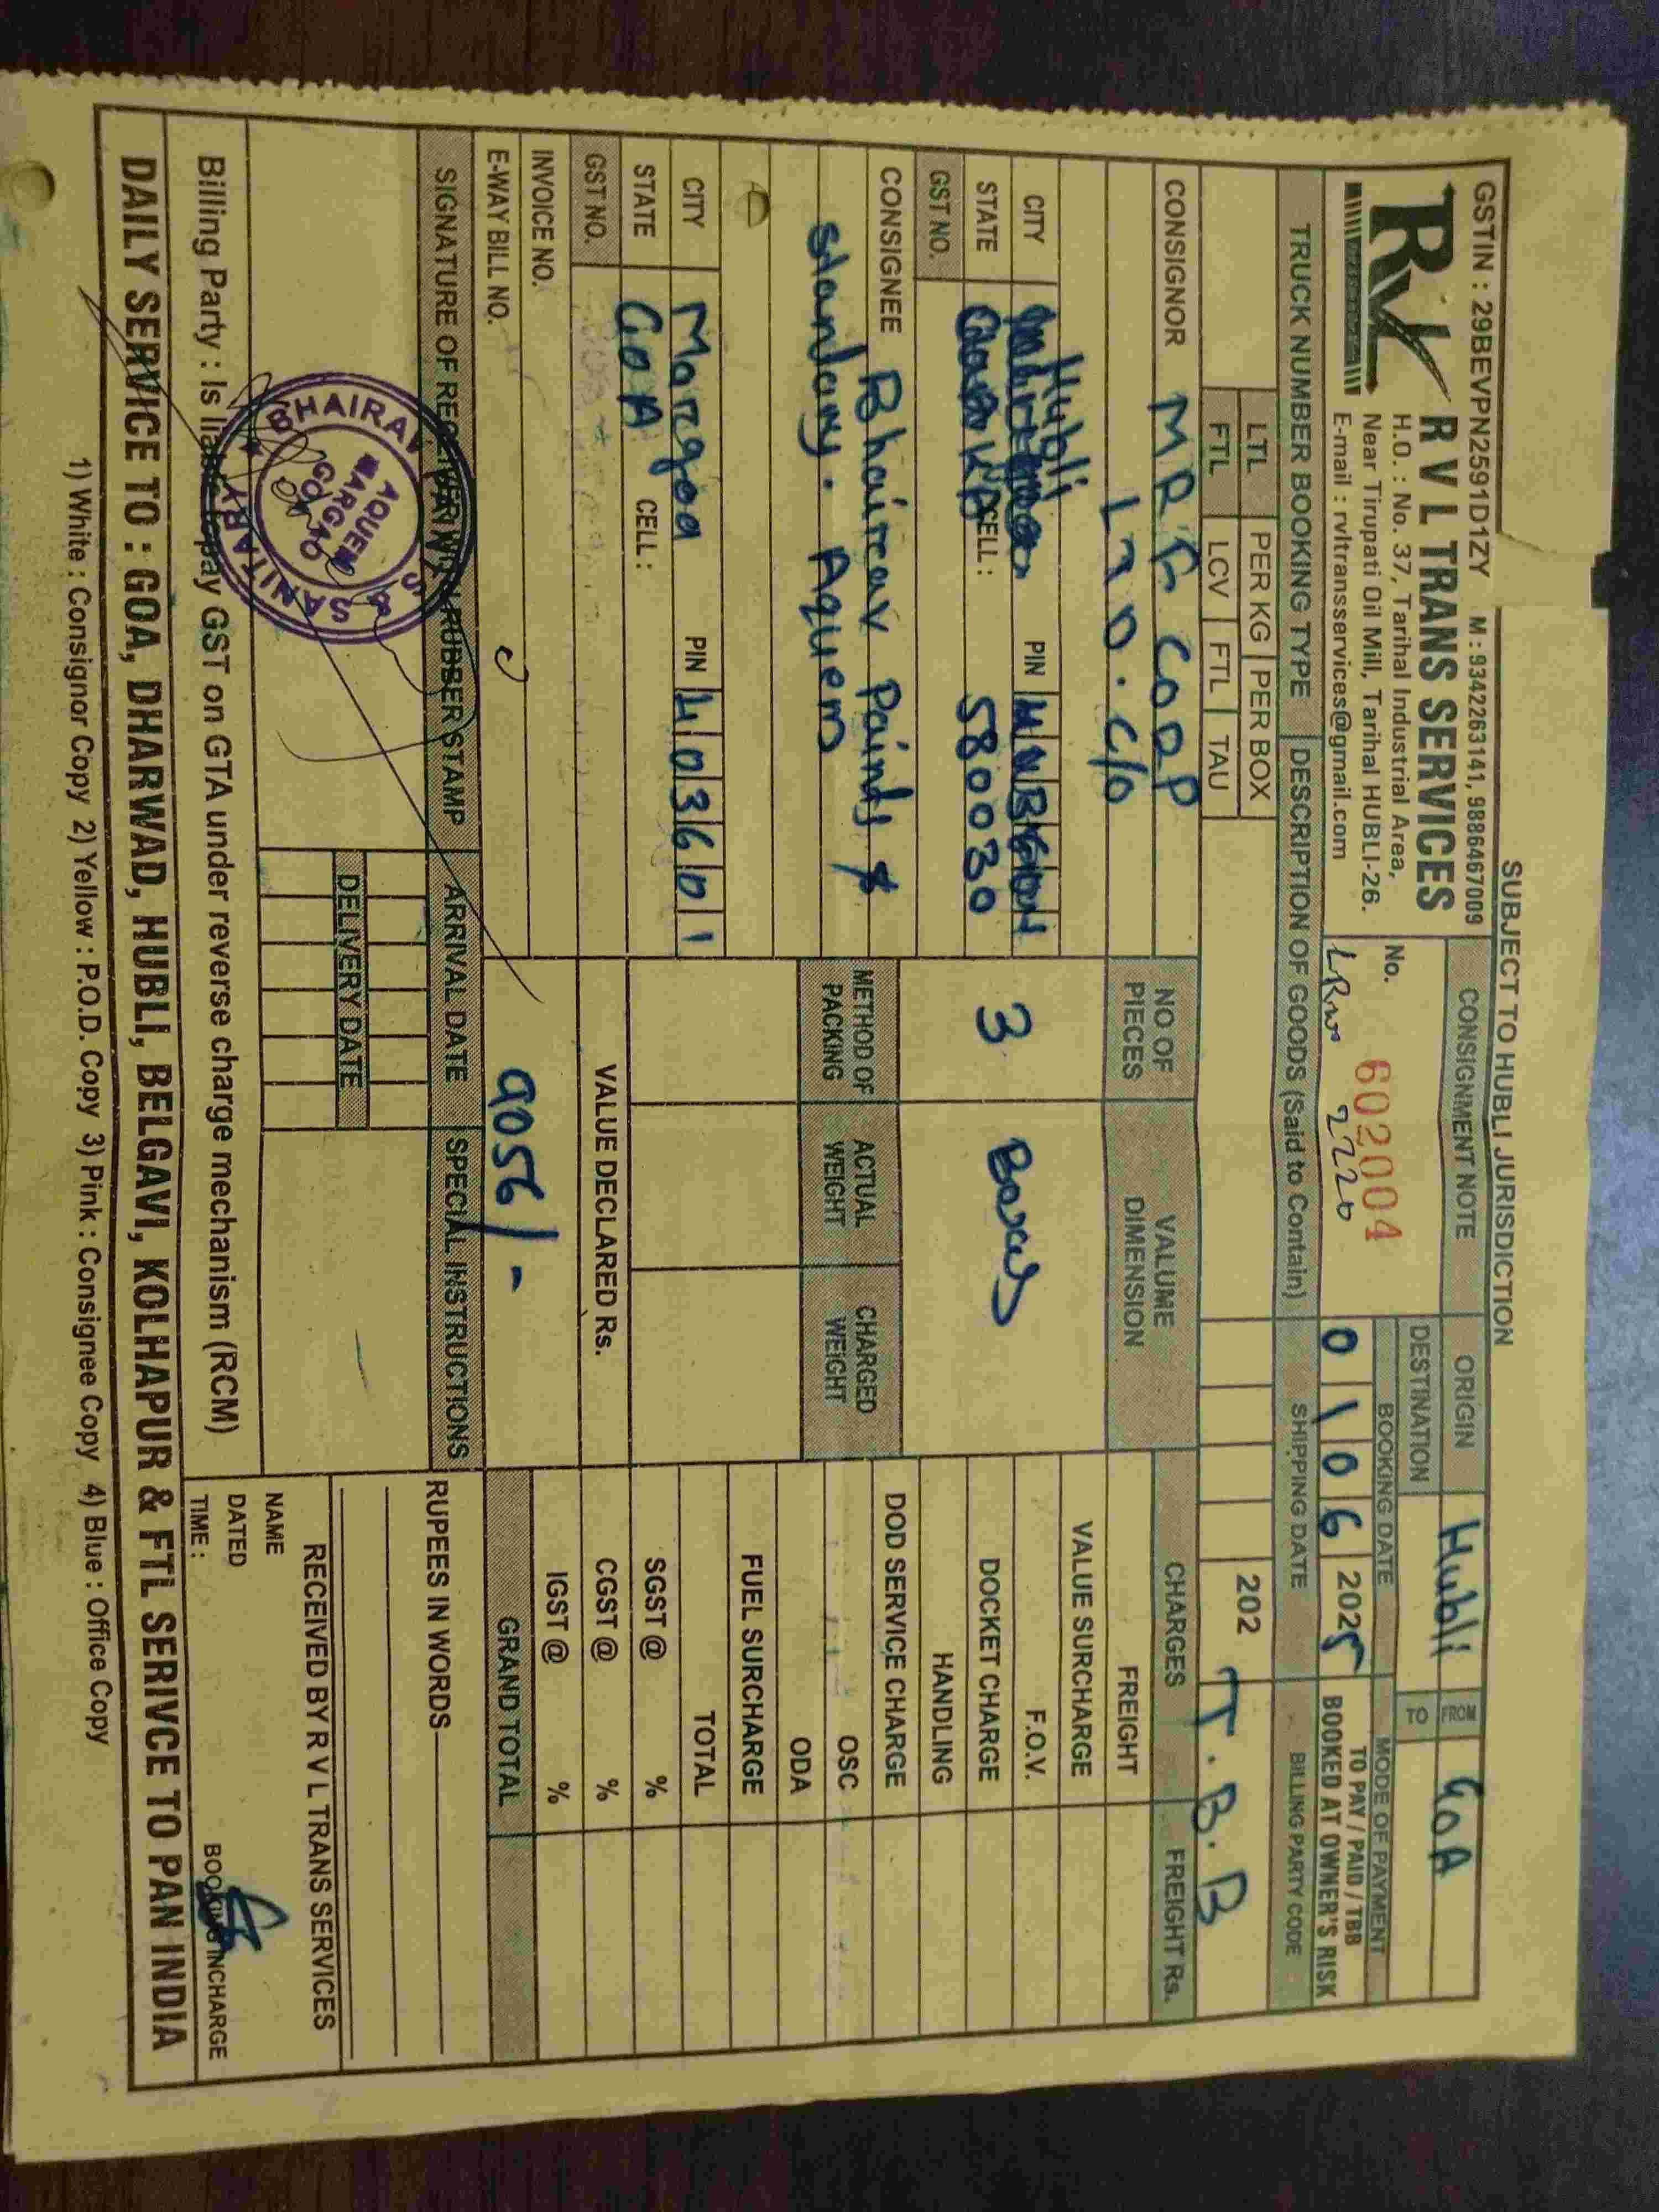 SUBJECT TO HUBLI JURISDICTION
GSTIN : 29BEVPN2591D1ZY M : 9342263141, 9886467009
RVL
R V L TRANS SERVICES
H.O. : No. 37, Tarihal Industrial Area,
Near Tirupati Oil Mill, Tarihal HUBLI-26.
E-mail : rvltransservices@gmail.com
CONSIGNMENT NOTE
No. 602004
LRno 2220
ORIGIN Hubli FROM GOA
DESTINATION TO
BOOKING DATE MODE OF PAYMENT
01 06 2025 TO PAY / PAID / TBB
BOOKED AT OWNER'S RISK
TRUCK NUMBER BOOKING TYPE DESCRIPTION OF GOODS (Said to Contain) SHIPPING DATE BILLING PARTY CODE
LTL PER KG PER BOX
FTL LCV FTL TAU
202 T.B.B
CONSIGNOR MRF COOP
L20. C/O
CITY Hubli PIN
STATE KA CELL : 580030
GST NO.
NO OF PIECES VALUME DIMENSION
3 Boxes
CHARGES FREIGHT Rs.
FREIGHT
VALUE SURCHARGE
F.O.V.
DOCKET CHARGE
HANDLING
DOD SERVICE CHARGE
OSC
ODA
FUEL SURCHARGE
TOTAL
SGST @ %
CGST @ %
IGST @ %
GRAND TOTAL
CONSIGNEE Bhairav Paints &
Sanitary. Aquem
CITY Margoa PIN 403601
STATE GOA CELL :
GST NO.
METHOD OF PACKING ACTUAL WEIGHT CHARGED WEIGHT
INVOICE NO.
E-WAY BILL NO.
VALUE DECLARED Rs.
9056/-
SIGNATURE OF RECEIVER WITH RUBBER STAMP ARRIVAL DATE SPECIAL INSTRUCTIONS
DELIVERY DATE
BHAIRAV PAINTS & SANITARY
AQUEM
MARGAO
GOA
RUPEES IN WORDS
RECEIVED BY R V L TRANS SERVICES
NAME
DATED
TIME : BOOKING INCHARGE
Billing Party : Is liable to pay GST on GTA under reverse charge mechanism (RCM)
DAILY SERVICE TO : GOA, DHARWAD, HUBLI, BELGAVI, KOLHAPUR & FTL SERIVCE TO PAN INDIA
1) White : Consignor Copy 2) Yellow : P.O.D. Copy 3) Pink : Consignee Copy 4) Blue : Office Copy